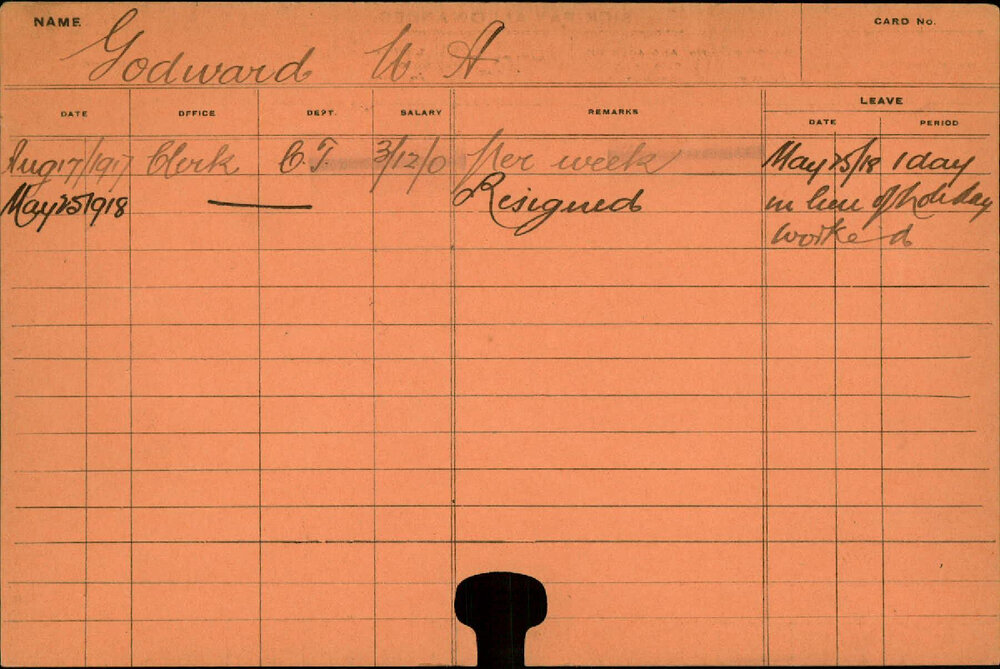 NAME Godward W A CARD No.
LEAVE
DATE OFFICE DEPT. SALARY REMARKS DATE PERIOD
Aug 17/1917 Clerk C.T 3/12/0 per week May 25/18 1 day
May 25 1918 Resigned in lieu of holiday
worked